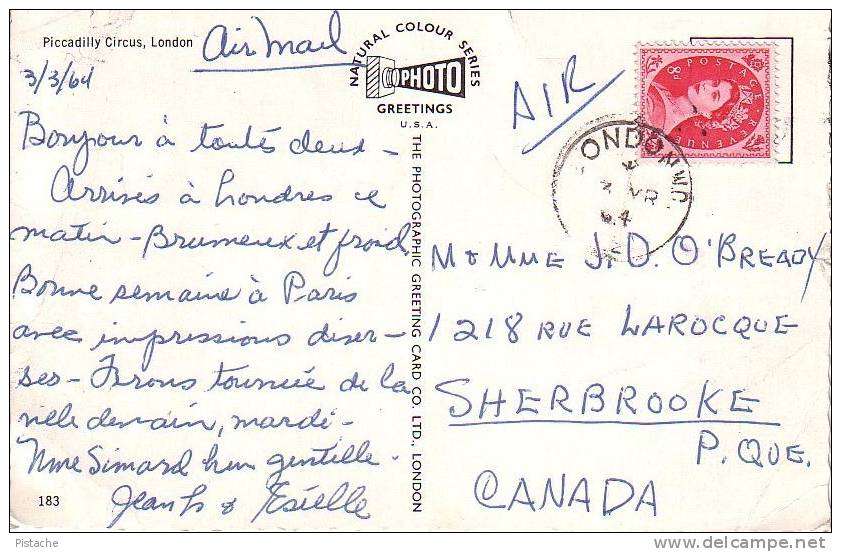 Piccadilly Circus, London
Air Mail
3/3/64
Bonjour à toutes deux -
Arrivés à Londres ce
matin - Brumeux et froid,
Bonne semaine à Paris
avec impressions diver-
ses - Ferons tournée de la
ville demain, mardi -
Mme Simard bien gentille -
Jean L &
183
NATURAL COLOUR SERIES
PHOTO
GREETINGS
U.S.A.
THE PHOTOGRAPHIC GREETING CARD CO. LTD., LONDON
AIR
POSTAGE REVENUE
8D
LONDON W.C.
M & MME J. D. O'BREADY
1218 RUE LAROCQUE
SHERBROOKE
P. QUE.
CANADA
Pistache
delcampe.net